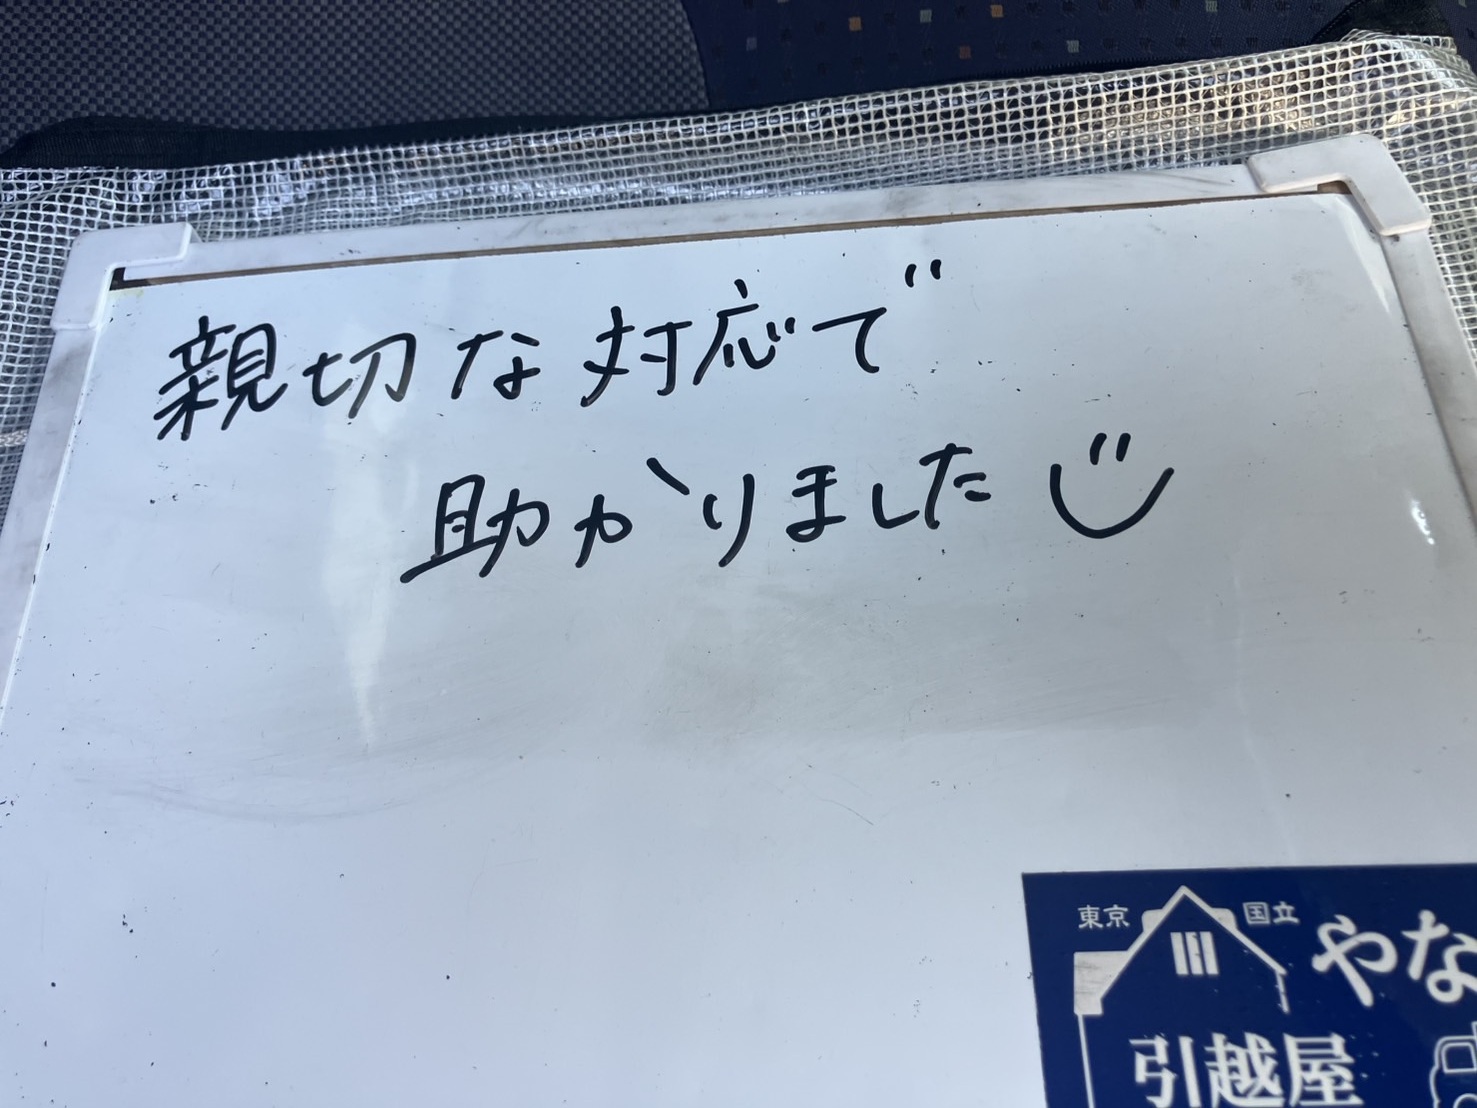 親切な対応で
助かりました
東京 国立
やな
引越屋